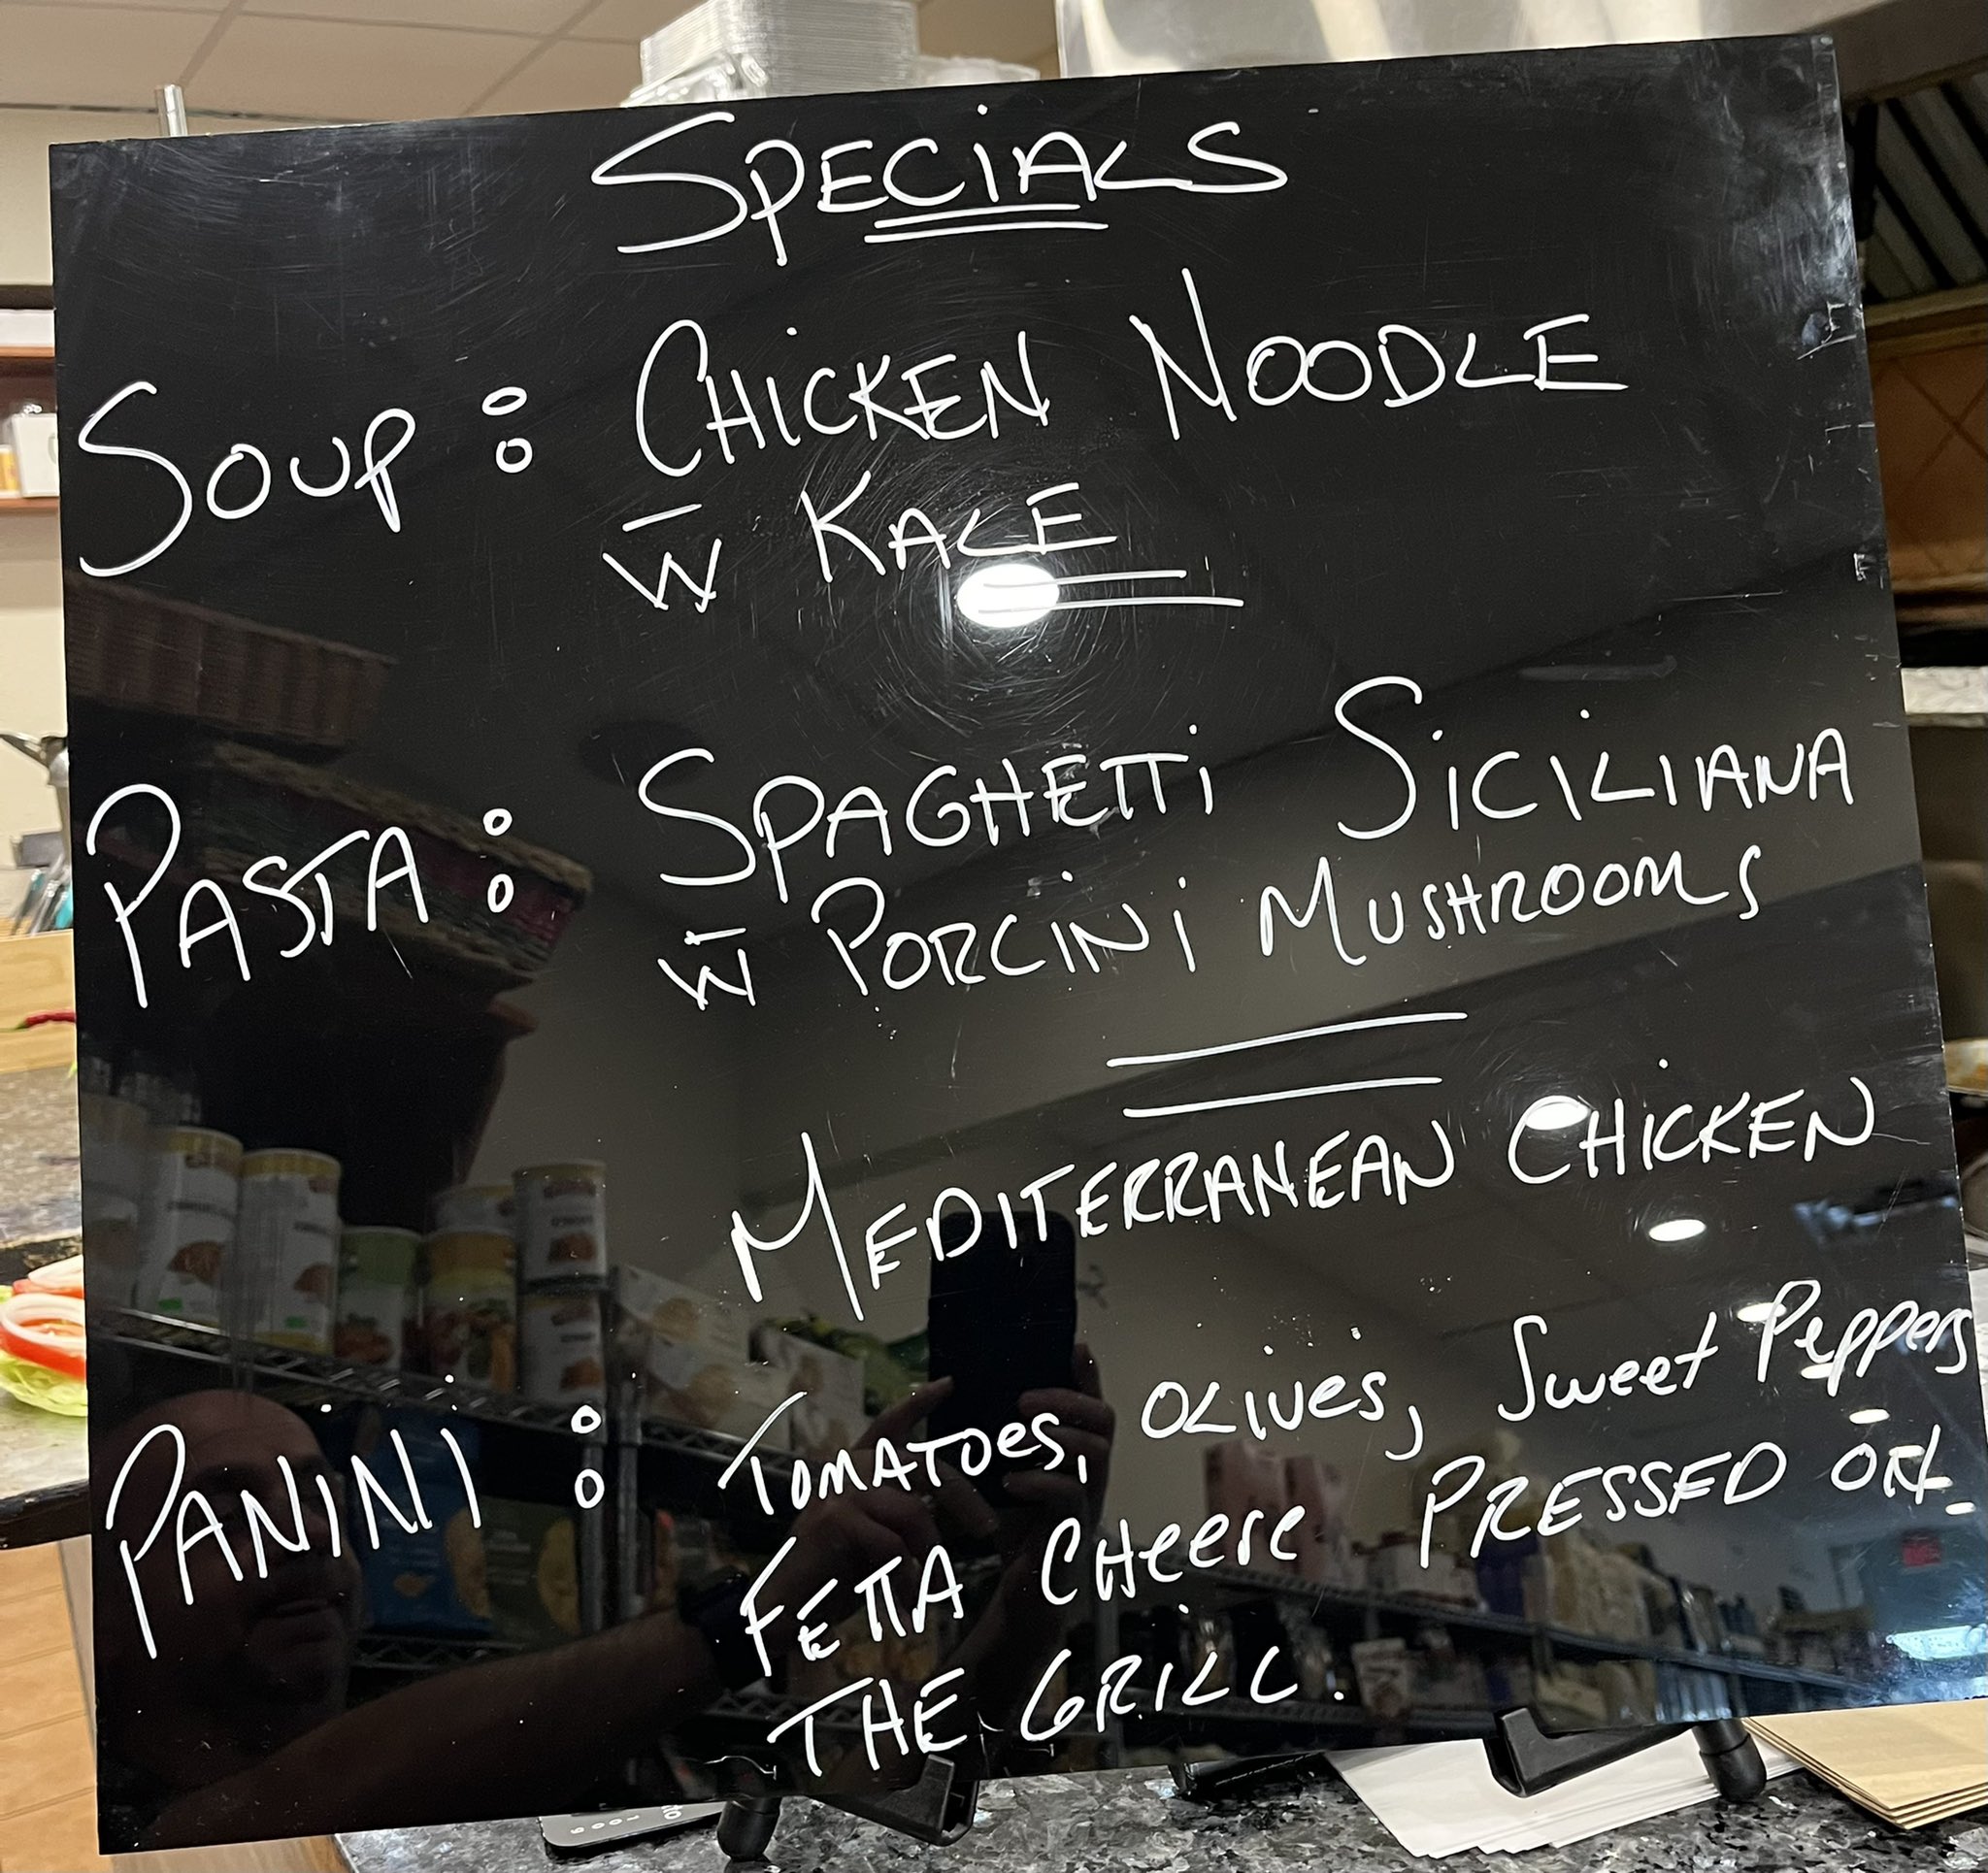 SPECiALS
SOUP: CHICKEN NOODLE
w̄ KALE
PASTA: SPAGHETTi SiCiLIANA
w̄ PORCINi MUSHROOMS
MEDITERRANEAN CHICKEN
PANiNi: TOMATOes, OLives, Sweet Peppers
FETTA CHeese PRESSED ON
THE GRiLL.